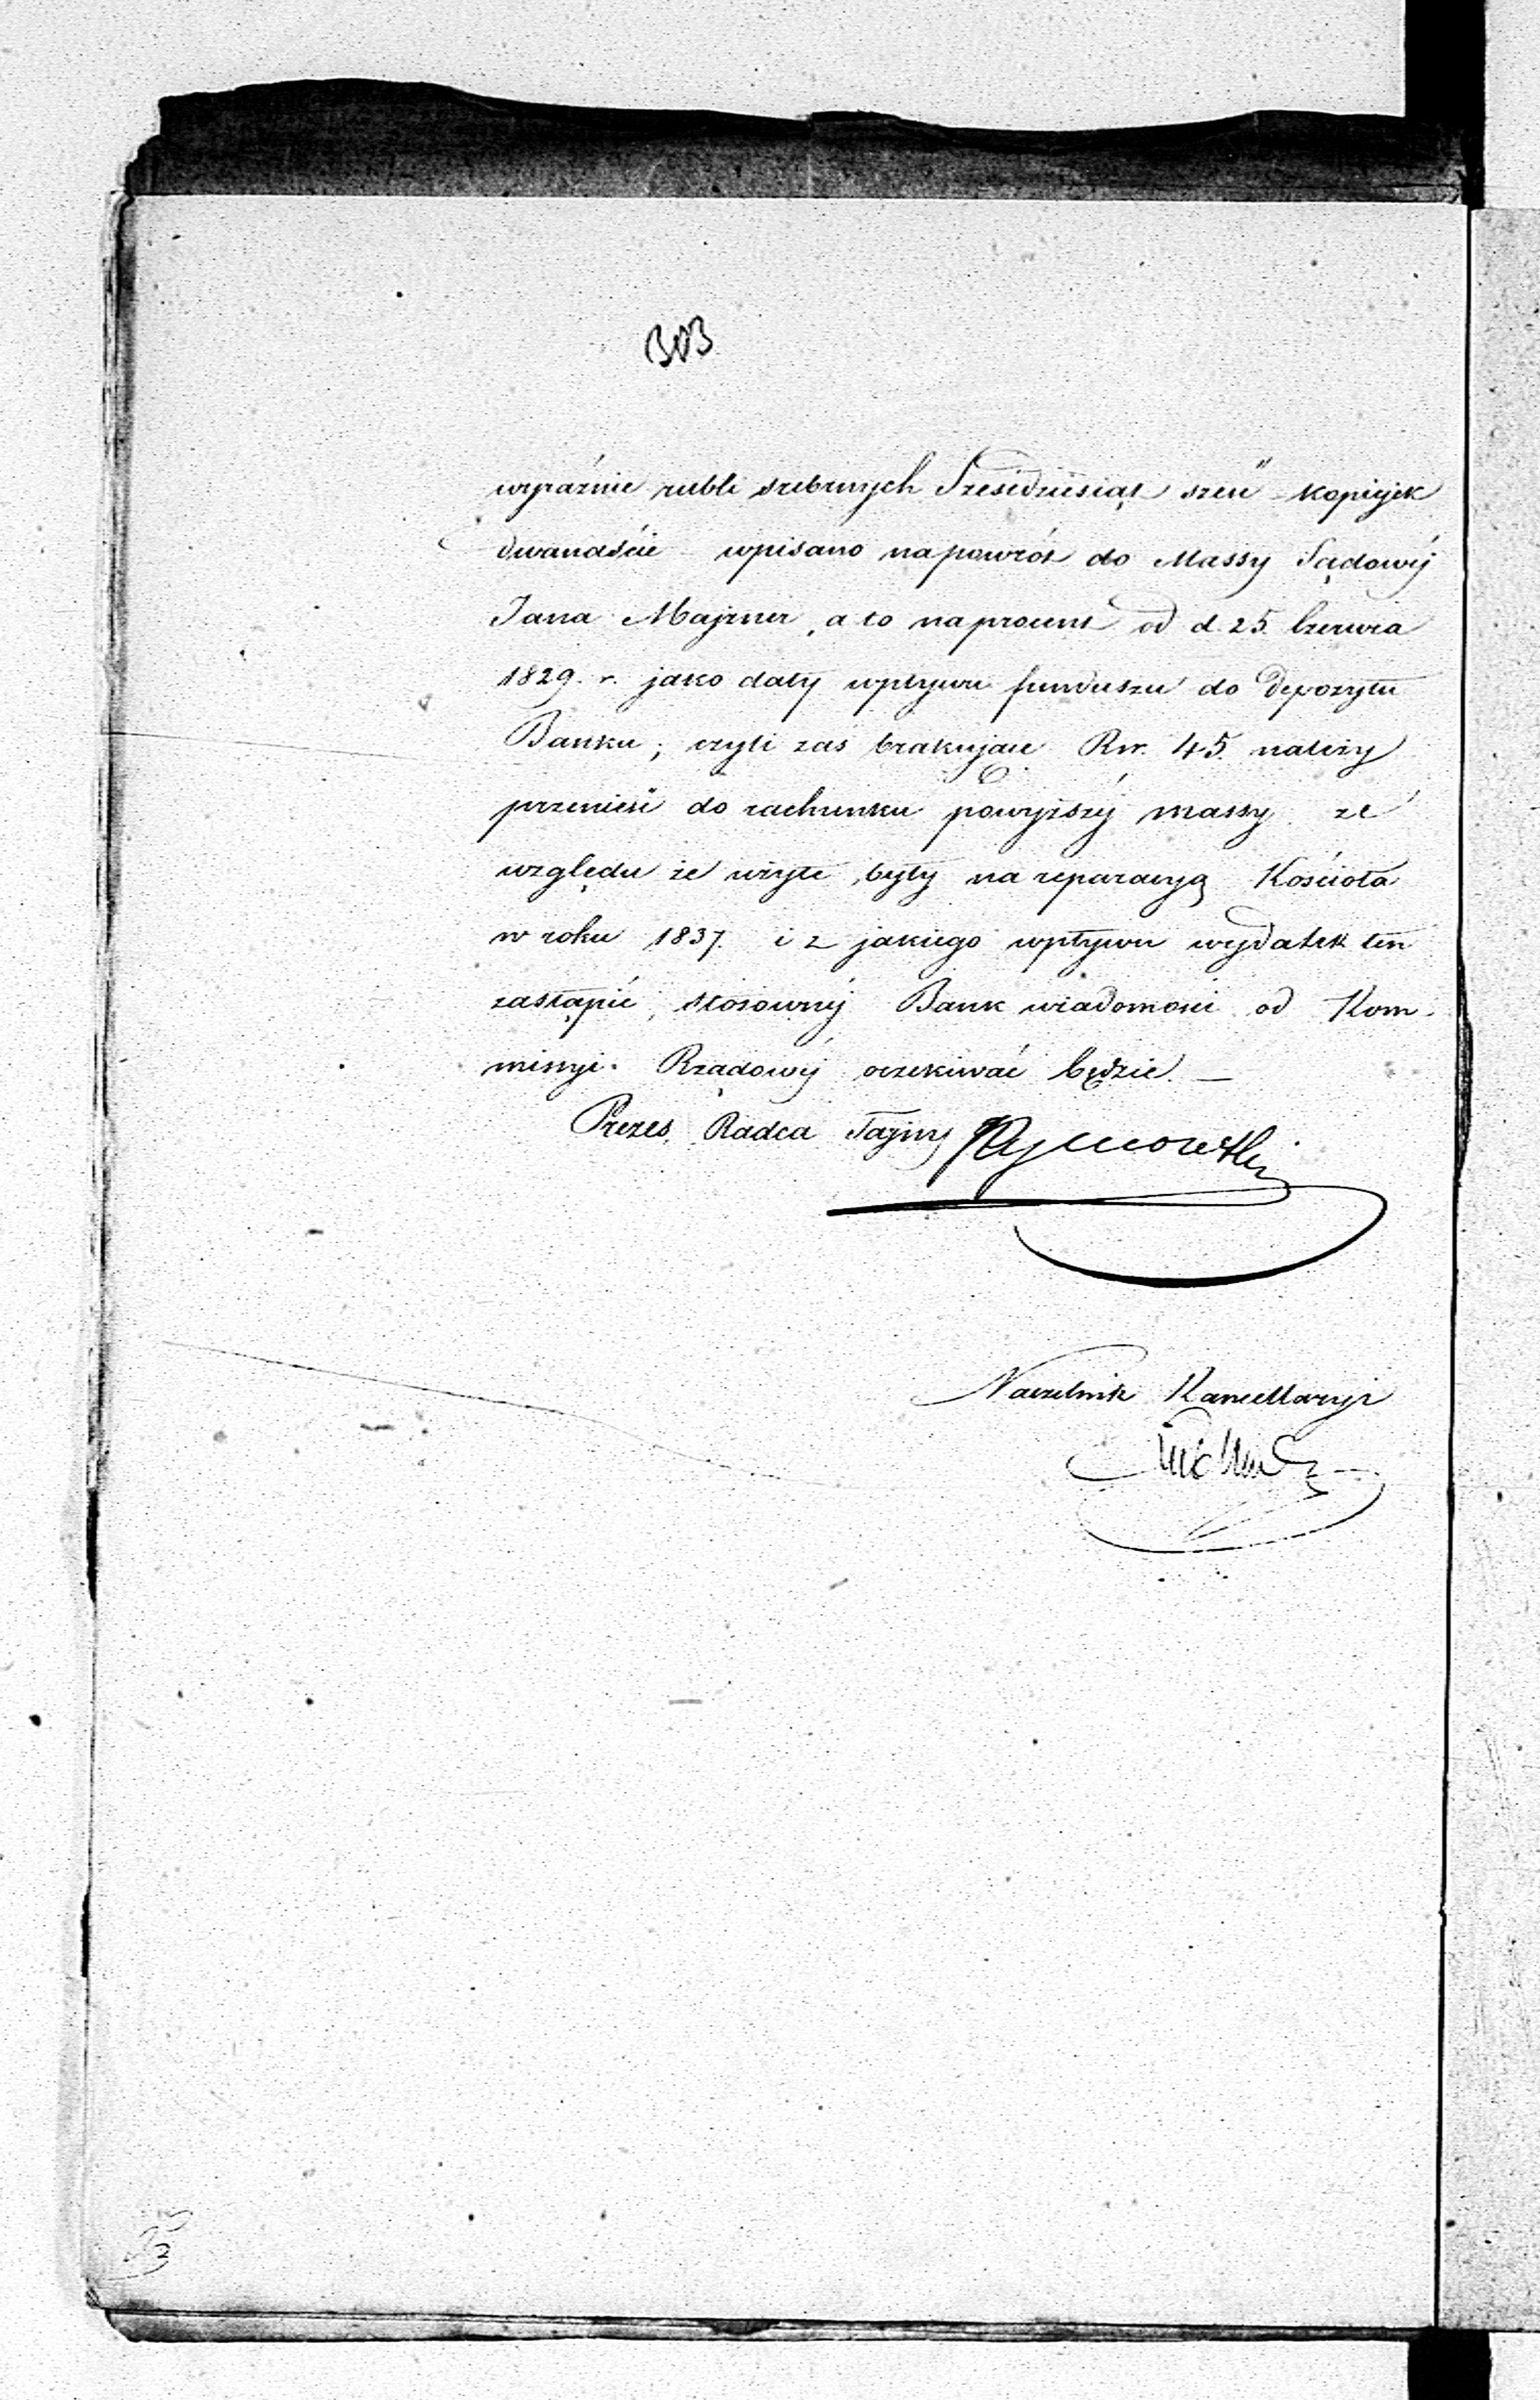 303
wyraźnie rubli srebrnych Sześćdziesiąt sześć kopiejek
dwanaście wpisano napowrót do Massy Sądowéj
Jana Majzner, a to na procent od d. 25. Czerwca
1829. r. jako daty wpływu funduszu do Depozytu
Banku; czyli zaś brakujące Rsr. 45. należy
przenieść do rachunku powyższéj massy ze
względu że użyte były na reparacyą Kościoła
w roku 1837. i z jakiego wpływu wydatek ten
zastąpić, stosownéj Bank wiadomości od Kom-
missyi Rządowéj oczekiwać będzie. —
Prezes, Radca Tajny
Naczelnik Kancellaryi